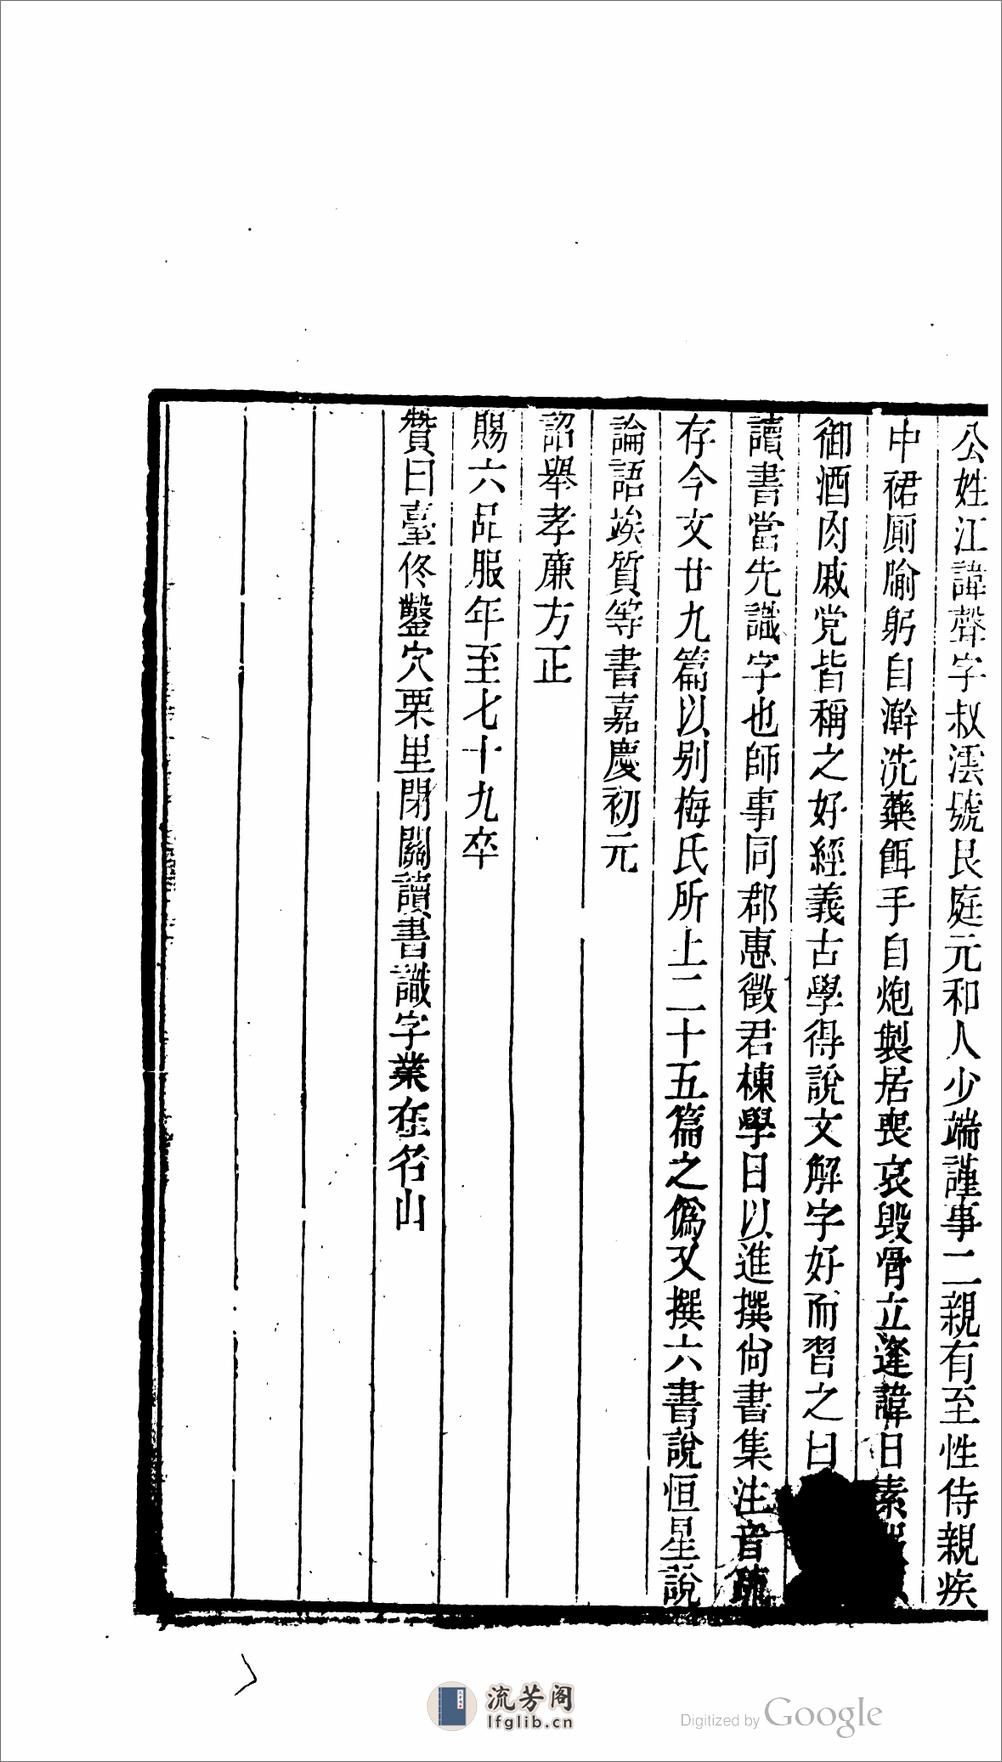 公姓江諱聲字叔澐號艮庭元和人少端謹事二親有至性侍親疾
中裙厠腧躬自澣洗藥餌手自炮製居喪哀毀骨立逢諱日素
御酒肉戚党皆稱之好經義古學得說文解字好而習之曰
讀書當先識字也師事同郡惠徵君棟學日以進撰尙書集注音疏
存今文廿九篇以別梅氏所上二十五篇之僞又撰六書說恒星說
論語竢質等書嘉慶初元
詔舉孝廉方正
賜六品服年至七十九卒
贊曰臺佟鑿穴栗里閉關讀書識字業在名山
流芳阁
lfglib.cn
Digitized by Google